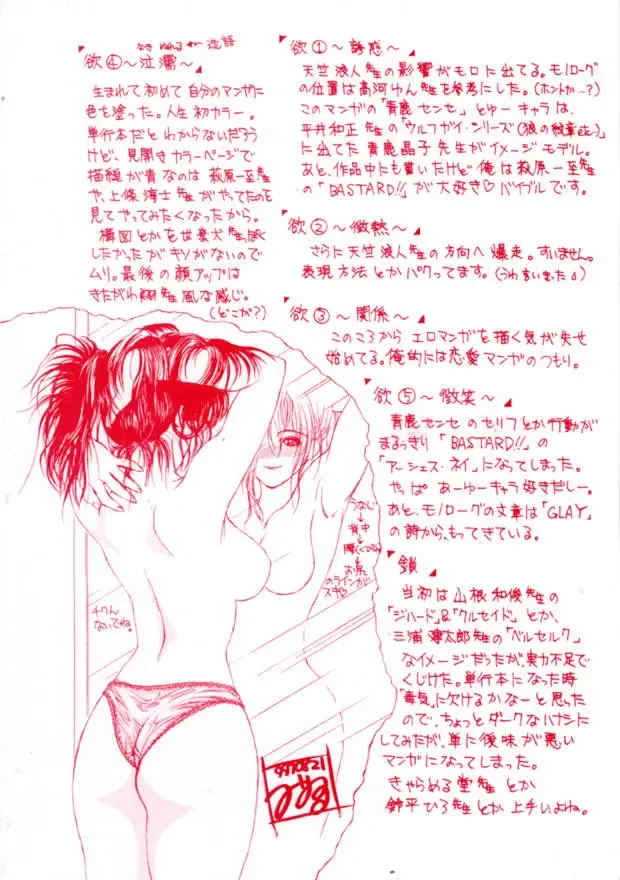 欲①～誘惑～
天竺浪人先生の影響がモロに出てる。モノローグ
の位置は高河ゆん先生を参考にした。(ホントか…?)
このマンガの「青鹿センセ」とゆーキャラは、
平井和正先生の「ウルフガイ・シリーズ(狼の紋章etc…)」
に出てた青鹿晶子先生がイメージモデル。
あと、作品中にも書いたけど俺は萩原一至先生
の「BASTARD!!」が大好き♡バイブルです。
欲②～微熱～
さらに天竺浪人先生の方向へ爆走。すいません。
表現方法とかパクってます。(うわ言いきった)
欲③～関係～
このころからエロマンガを描く気が失せ
始めてる。俺的には恋愛マンガのつもり。
なき ぬれる ← 造語
欲④～泣濡～
生まれて初めて自分のマンガに
色を塗った。人生初カラー。
単行本だとわからないだろう
けど、見開きカラーページで
描線が青なのは萩原一至先生
や、上條淳士先生がやってたのを
見てやってみたくなったから。
構図とかを世棄犬先生ぽく
したかったがキソがないので
ムリ。最後の顔アップは
きたがわ翔先生風な感じ。
(どこが?)
欲⑤～微笑～
青鹿センセのセリフとか行動が
まるっきり「BASTARD!!」の
「アーシェス・ネイ」になってしまった。
やっぱあーゆーキャラ好きだしー。
あと、モノローグの文章は「GLAY」
の詩から、もってきている。
鎖
当初は山根和俊先生の
「ジハード」&「クルセイド」とか、
三浦建太郎先生の「ベルセルク」
なイメージだったが、実力不足で
くじけた。単行本になった時
「毒気」に欠けるかなーと思った
ので、ちょっとダークなハナシに
してみたが、単に後味が悪い
マンガになってしまった。
きゃらめる堂先生とか
鈴平ひろ先生とか上手いよね。
うなじ
↓
背中
↓
腰(くびれ)
↓
お尻
のラインが
スキ♡
チクん
ないでね。
990821